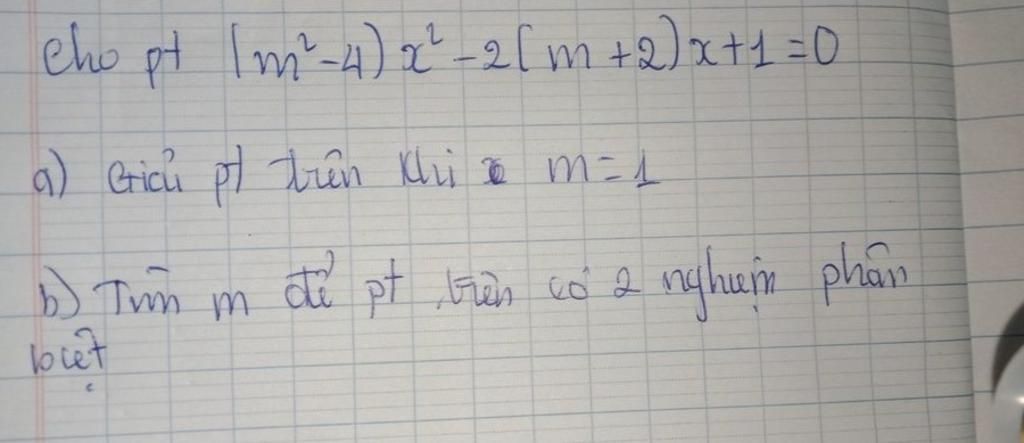 Cho pt (m²-4)x²-2(m+2)x+1=0
a) Giải pt trên khi m=1
b) Tìm m để pt trên có 2 nghiệm phân
biệt